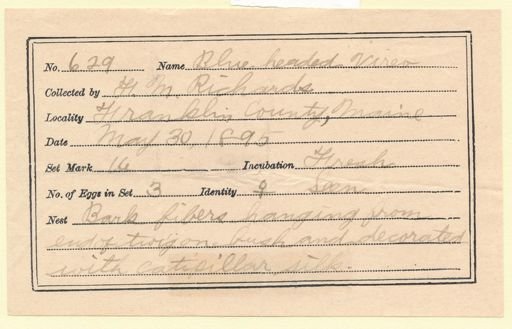 No. 629 Name Blue headed Vireo
Collected by H. M. Richards
Locality Franklin County, Maine
Date May 30, 1895
Set Mark 16 Incubation Fresh
No. of Eggs in Set 3 Identity ♀ Seen
Nest Bark fibers hanging from
end of twig on bush and decorated
with caterpillar silk.